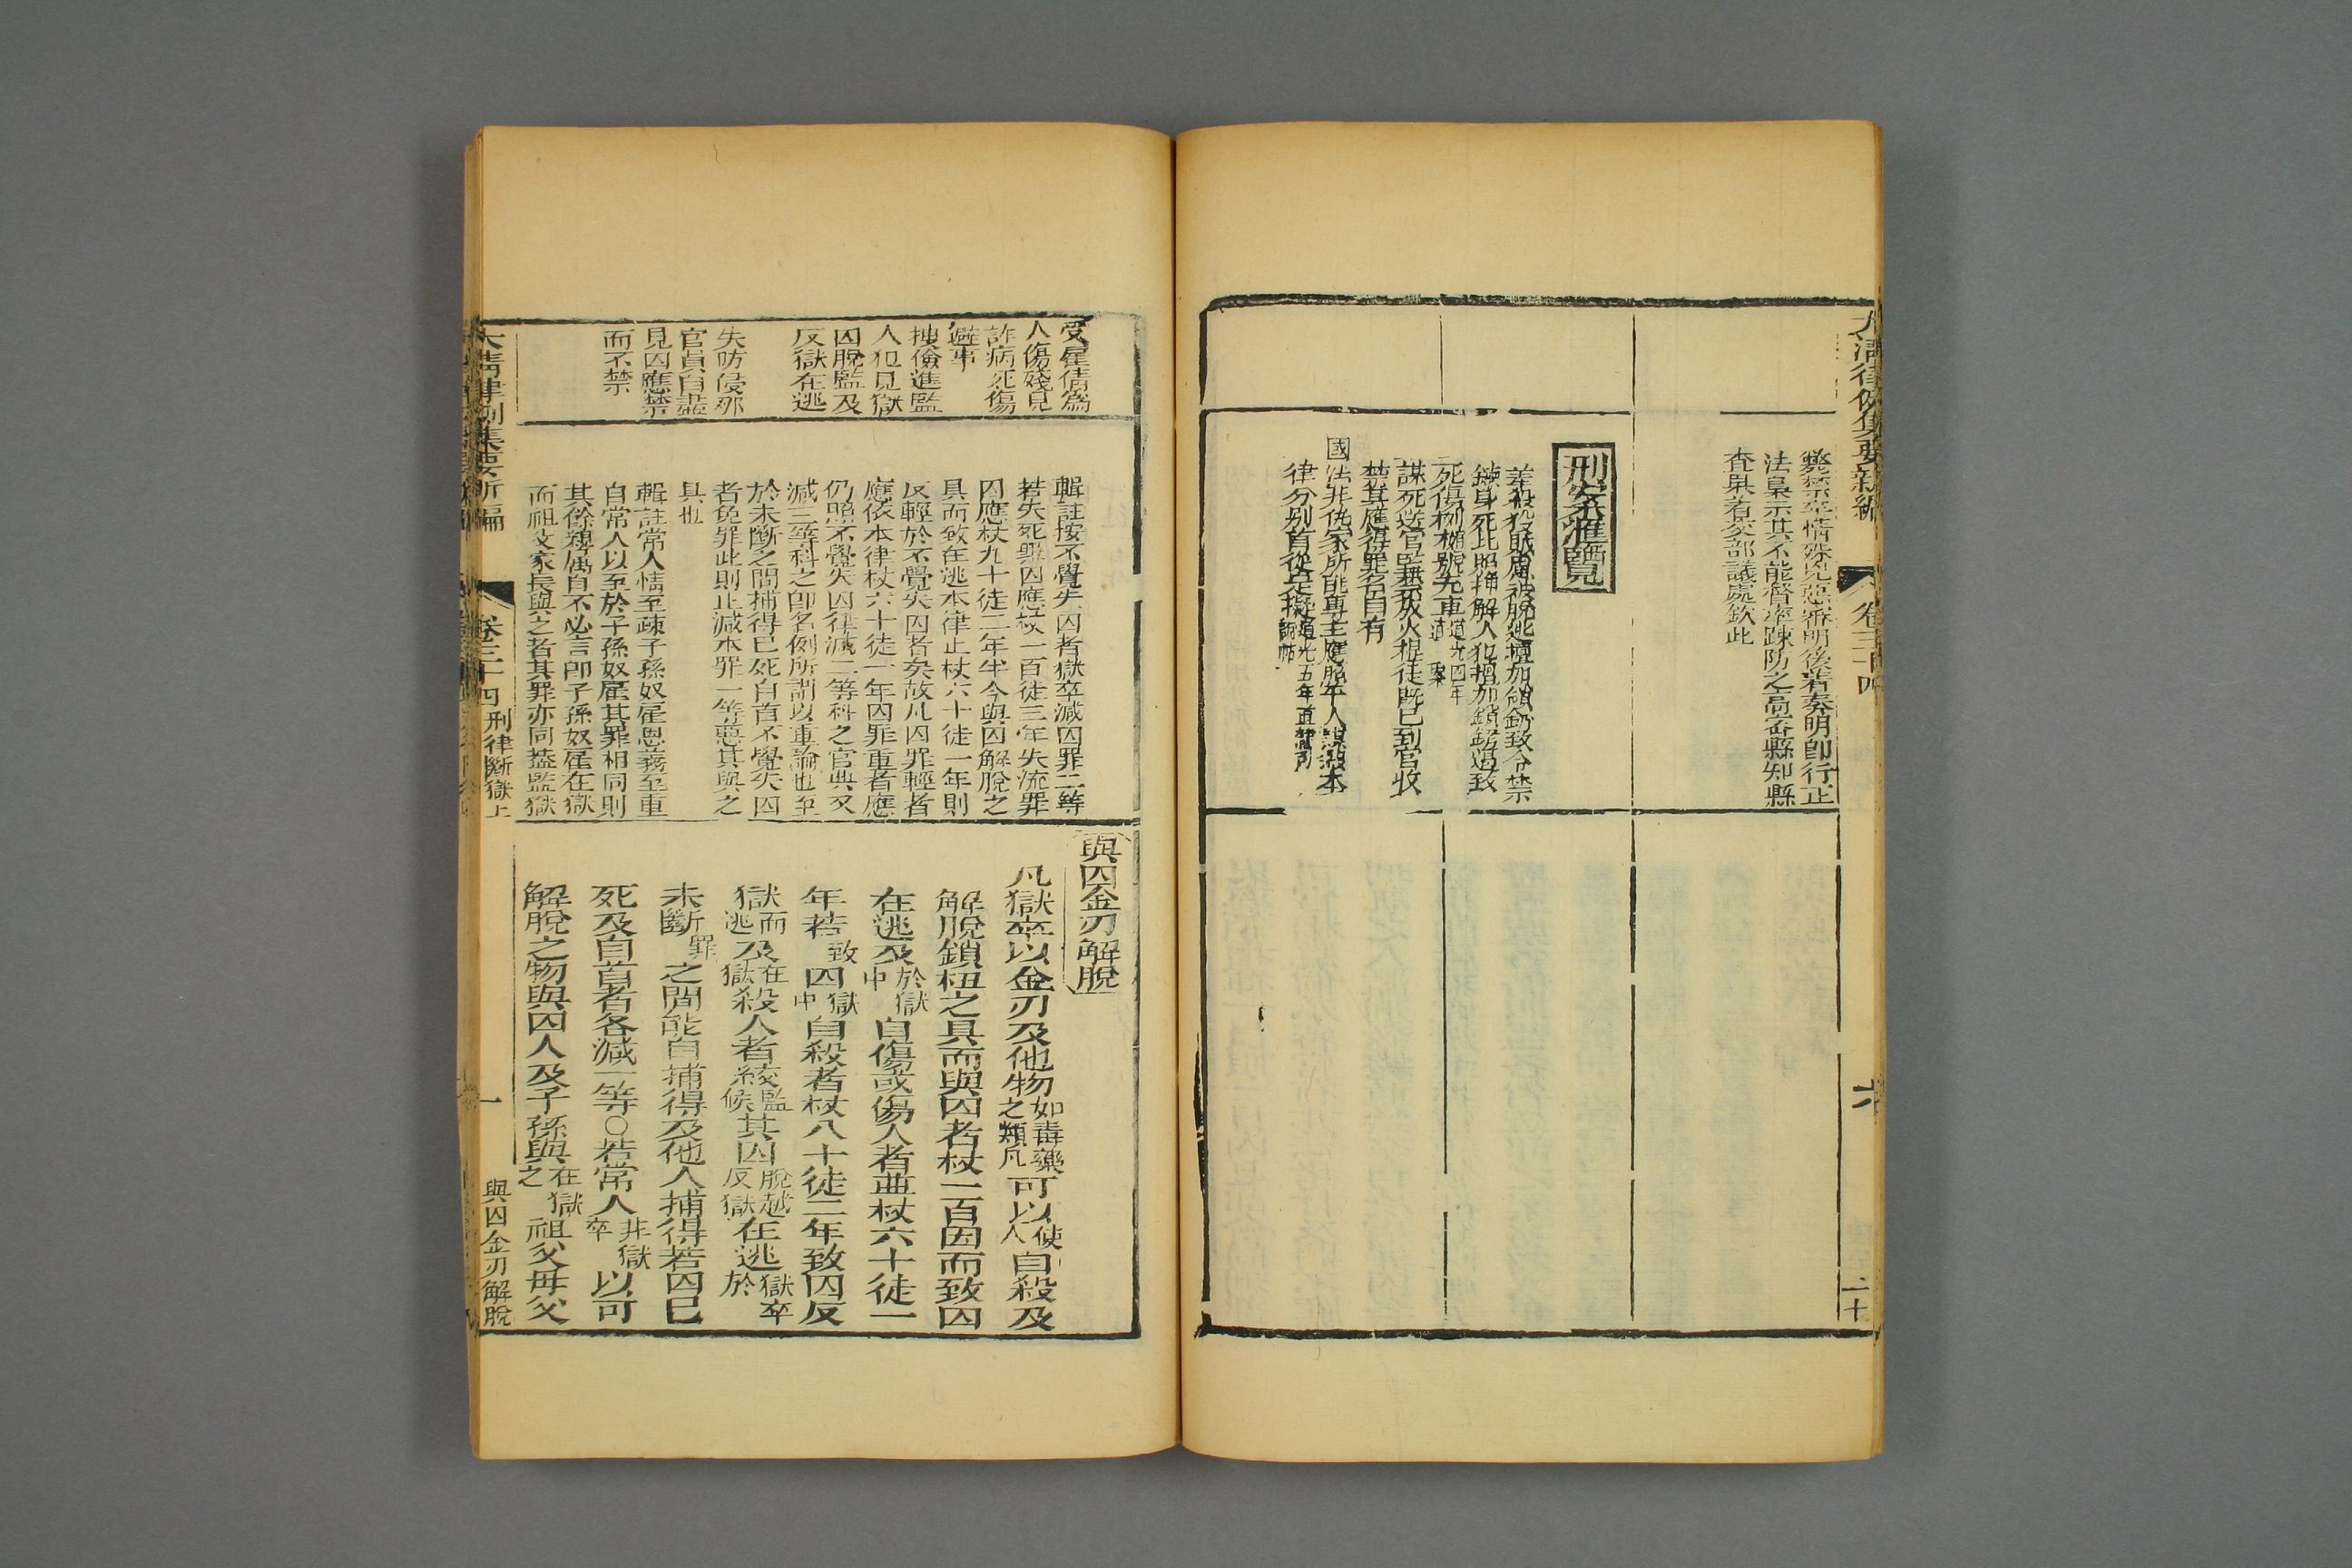 大清律例集要新編
卷三十四
二十
法梟示其不能督率疎防之高密縣知縣
查杲着交部議處欽此
刑案滙覽
謀死送官監禁放火棍徒旣已到官收
禁其應得罪名自有
國法非仇家所能專主應照平人謀殺本
律分別首從定擬道光五年直隸司
說帖
受雇倩爲
人傷殘見
詐病死傷
避事
搜儉進監
人犯見獄
囚脫監及
反獄在逃
失防侵那
官員自盡
見囚應禁
而不禁
輯註按不覺失囚者獄卒減囚罪二等
若失死罪囚應杖一百徒三年失流罪
囚應杖九十徒二年半今與囚解脫之
具而致在逃本律止杖六十徒一年則
反輕於不覺失囚者矣故凡囚罪輕者
應依本律杖六十徒一年囚罪重者應
仍照不覺失囚律減二等科之官典又
減三等科之卽名例所謂以重論也至
於未斷之間捕得已死自首不覺失囚
者免罪此則止減本罪一等惡其與之
具也
輯註常人情至疎子孫奴雇恩義至重
自常人以至於子孫奴雇其罪相同則
其餘親屬自不必言卽子孫奴雇在獄
而祖父家長與之者其罪亦同蓋監獄
與囚金刃解脫
凡獄卒以金刃及他物如毒藥之類凡可以使人自殺及
解脫鎖杻之具而與囚者杖一百因而致囚
在逃及於獄中自傷或傷人者並杖六十徒一
年若致囚獄中自殺者杖八十徒二年致囚反
獄而逃及在獄殺人者絞監候其囚脫越反獄在逃獄卒於
未斷罪之間能自捕得及他人捕得若囚已
死及自首者各減一等○若常人非獄卒以可
解脫之物與囚人及子孫與在獄之祖父母父
大清律例集要新編
卷三十四 刑律斷獄上
一
與囚金刃解脫